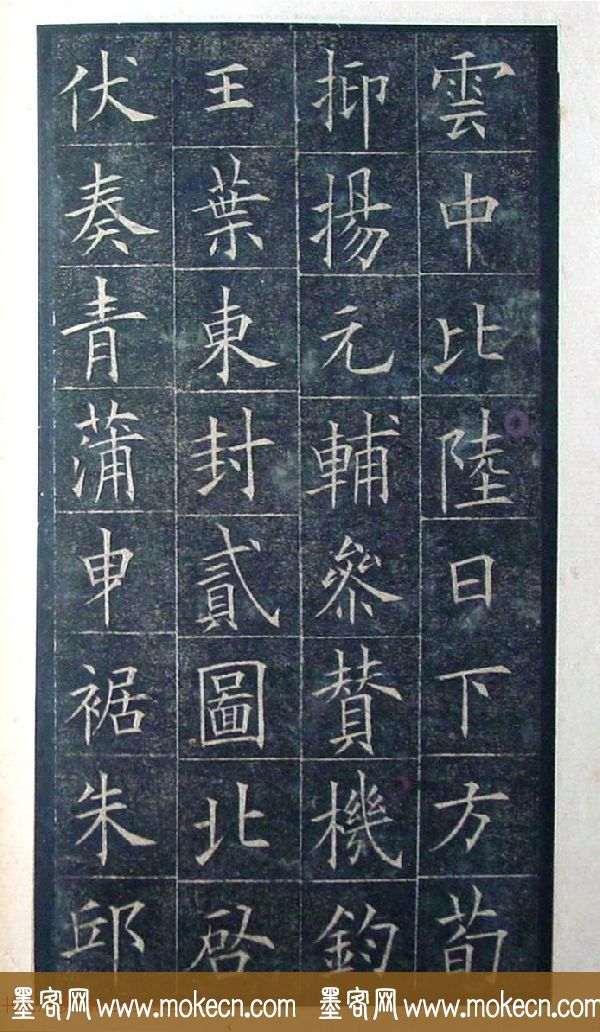 雲中比陸日下方荀
抑揚元輔參賛機鈞
王葉東封貳圖北啓
伏奏青蒲申裾朱邱
墨客网 www.mokecn.com 墨客网 www.mokecn.com